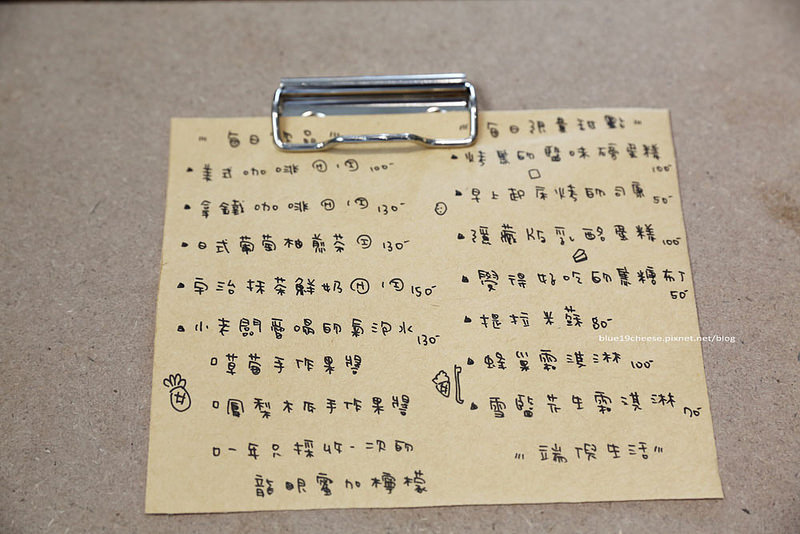 每日 品
美式咖啡 Ⓗ Ⓘ 100-
拿鐵咖啡 Ⓗ Ⓘ 130-
日式葡萄柚煎茶 Ⓘ 130-
宇治抹茶鮮奶 Ⓗ Ⓘ 150-
小老闆愛喝的氣泡水 130-
草莓手作果醬
鳳梨木瓜手作果醬
一年只採收一次的
龍眼蜜加檸檬
每日限量甜點
烤 的鹽味磅蛋糕 100-
早上起床烤的司康 50-
隱藏版乳酪蛋糕 100-
覺得好吃的焦糖布丁 50-
提拉米蘇 80-
蜂巢霜淇淋 100-
雪鹽花生霜淇淋 70-
端倪生活
blue19cheese.pixnet.net/blog